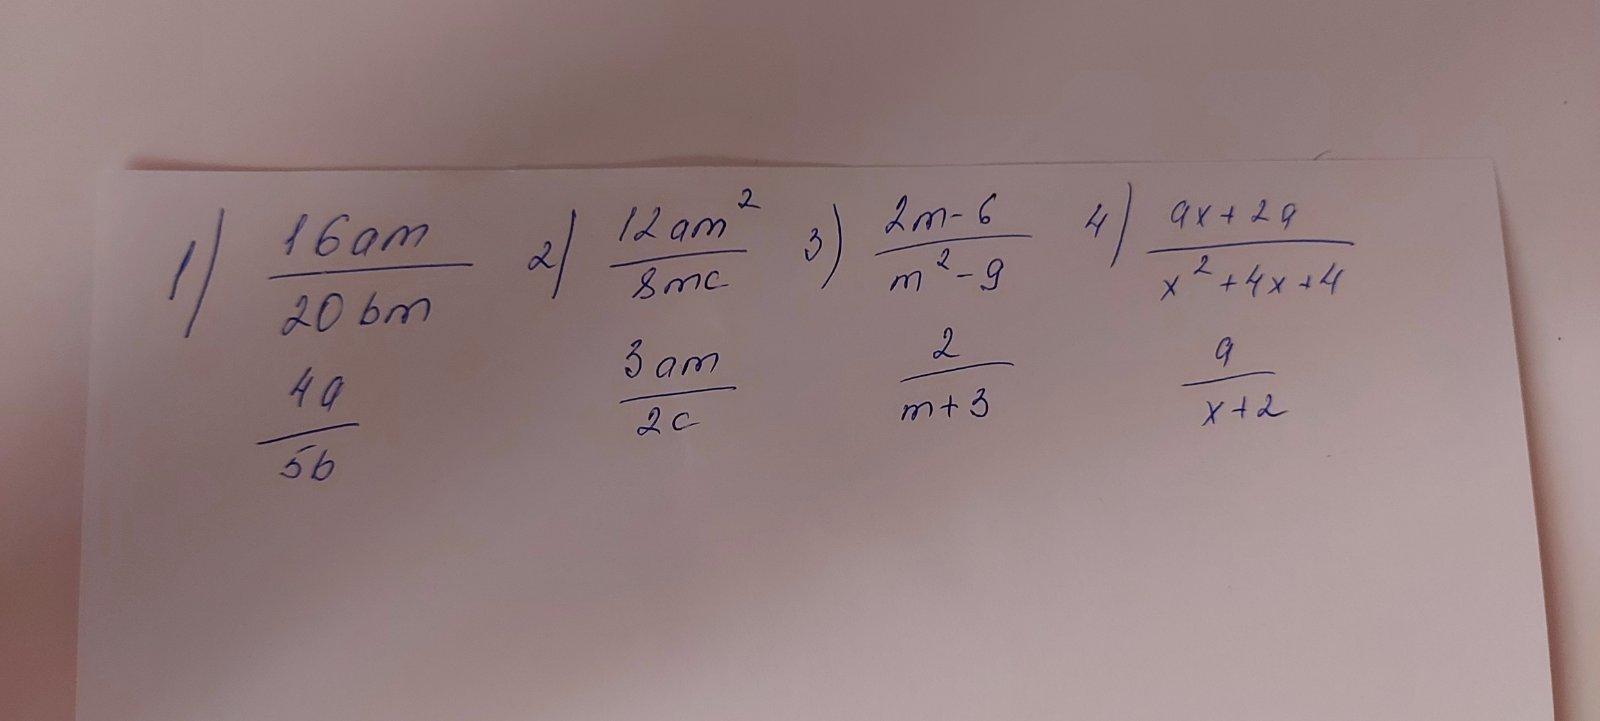 1) 16am/20bm 2) 12am²/8mc 3) 2m-6/m²-9 4) ax+2a/x²+4x+4
4a/5b 3am/2c 2/m+3 a/x+2